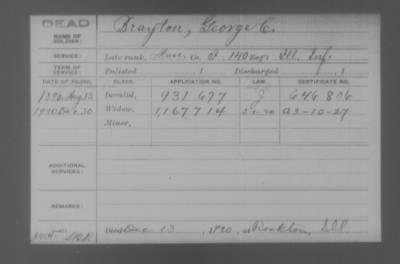 DEAD
NAME OF SOLDIER: Drayton, George C.
SERVICE: Late rank, Co. F, 140 Reg't Ill. Inf.
TERM OF SERVICE: Enlisted , 1 Discharged , 1
DATE OF FILING. CLASS. APPLICATION NO. LAW. CERTIFICATE NO.
1890 Aug 13 Invalid, 931 677 J 646 806
1920 Dec. 30 Widow, 1,167,714 A3-10-27
Minor,
ADDITIONAL SERVICES:
REMARKS:
Died Dec 13, 1920, at Rockton, Ill.